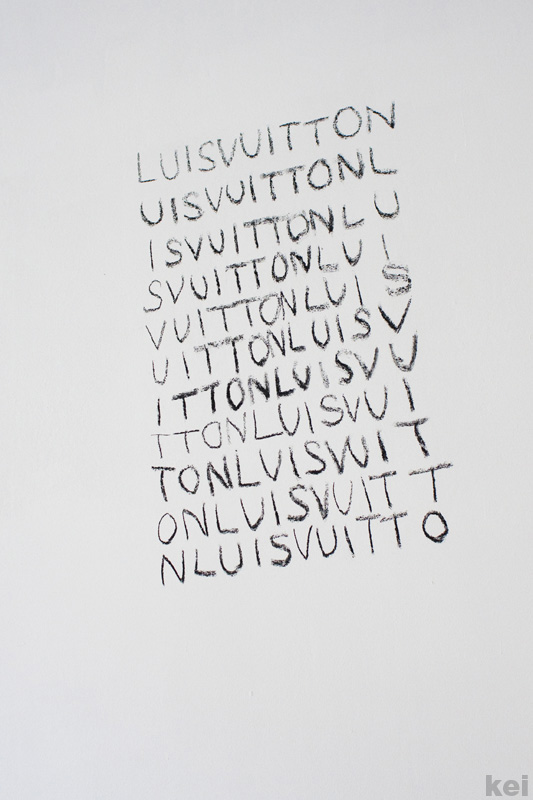 LUISVUITTON
UISVUITTONL
ISVUITTONLU
SVUITTONLUI
VUITTONLUIS
UITTONLUISV
ITTONLUISVU
TTONLUISVUI
TONLUISVUIT
ONLUISVUITT
NLUISVUITTO
kei